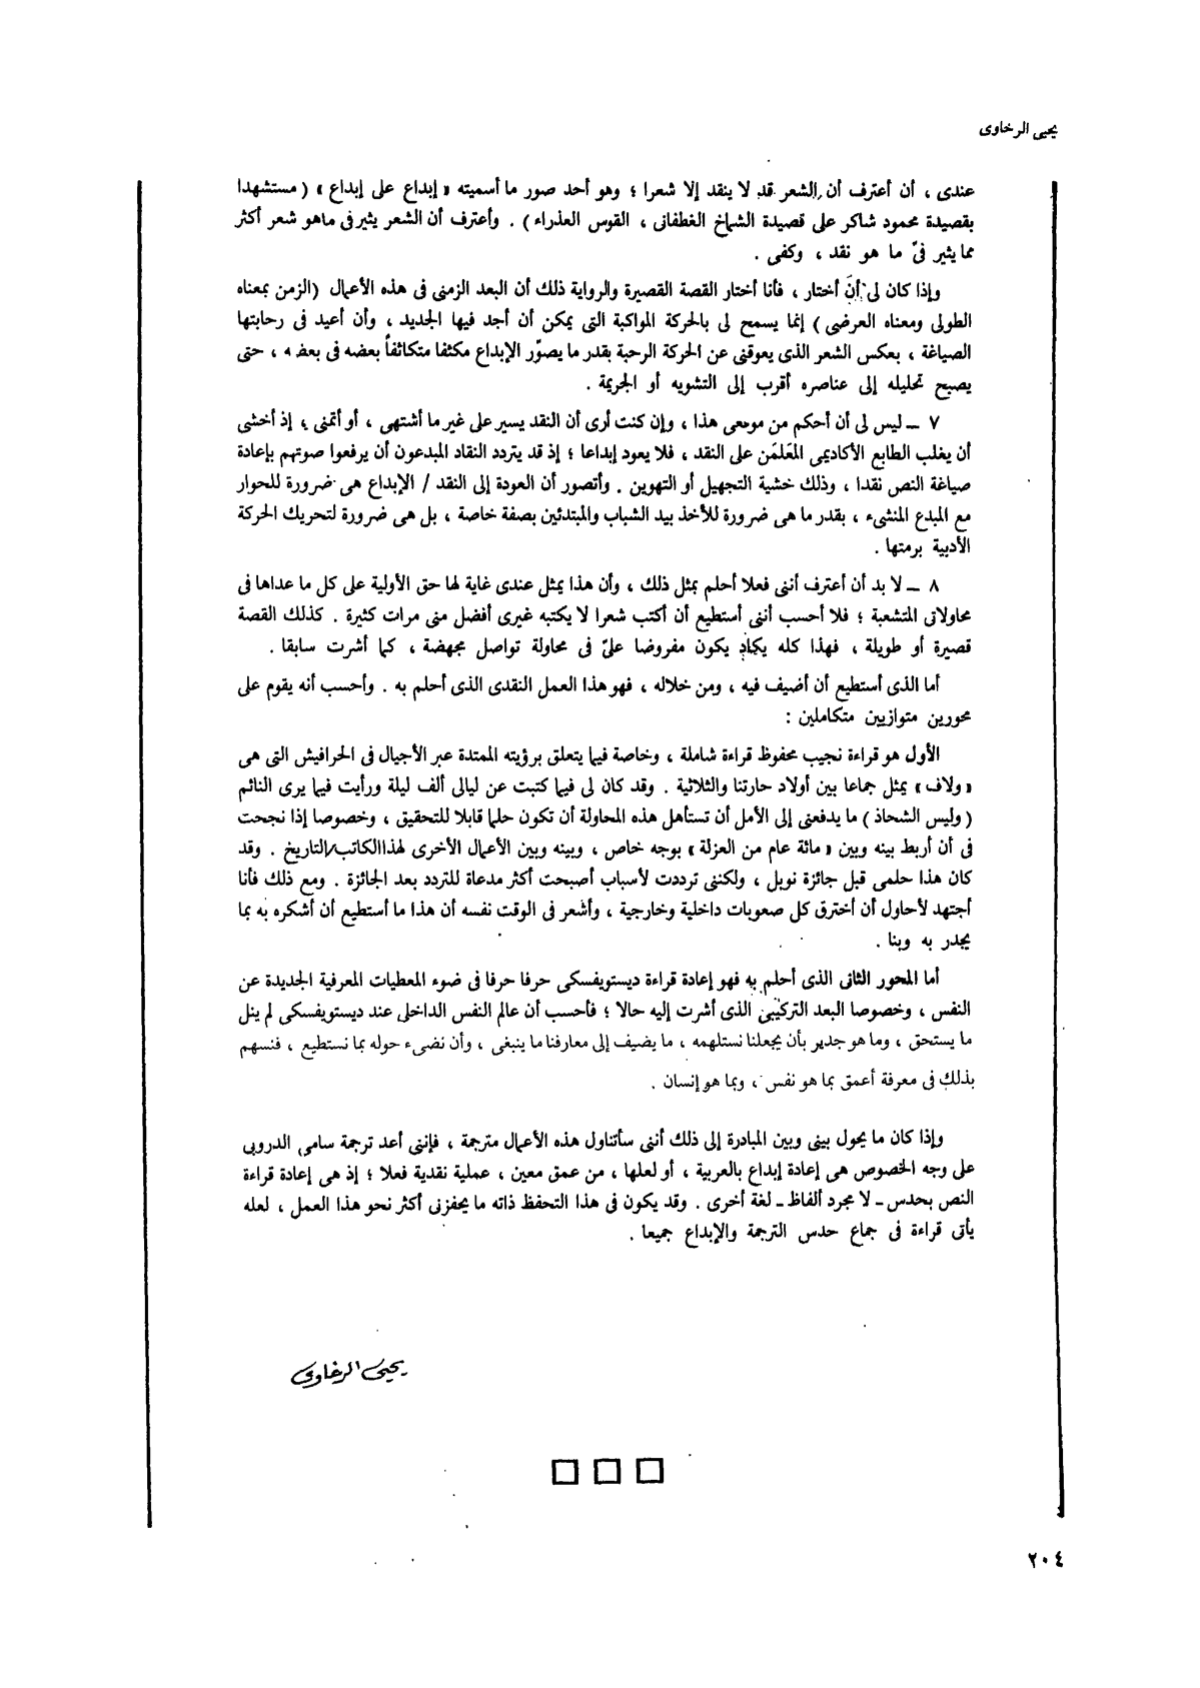 يحيى الرخاوى
عندى ، أن أعترف أن الشعر قد لا ينقد إلا شعرا ؛ وهو أحد صور ما أسميته « إبداع على إبداع » ( مستشهدا
بقصيدة محمود شاكر على قصيدة الشماخ الغطفانى ، القوس العذراء ) . وأعترف أن الشعر يثير فى ماهو شعر أكثر
مما يثير فىّ ما هو نقد ، وكفى .
وإذا كان لى أن أختار ، فأنا أختار القصة القصيرة والرواية ذلك أن البعد الزمنى فى هذه الأعمال (الزمن بمعناه
الطولى ومعناه العرضى ) إنما يسمح لى بالحركة المواكبة التى يمكن أن أجد فيها الجديد ، وأن أعيد فى رحابتها
الصياغة ، بعكس الشعر الذى يعوقنى عن الحركة الرحبة بقدر ما يصوّر الإبداع مكثفا متكاثفاً بعضه فى بعضه ، حتى
يصبح تحليله إلى عناصره أقرب إلى التشويه أو الجريمة .
٧ ــ ليس لى أن أحكم من موقعى هذا ، وإن كنت أرى أن النقد يسير على غير ما أشتهى ، أو أتمنى ، إذ أخشى
أن يغلب الطابع الأكاديمى المعَلمَن على النقد ، فلا يعود إبداعا ؛ إذ قد يتردد النقاد المبدعون أن يرفعوا صوتهم بإعادة
صياغة النص نقدا ، وذلك خشية التجهيل أو التهوين . وأتصور أن العودة إلى النقد / الإبداع هى ضرورة للحوار
مع المبدع المنشىء ، بقدر ما هى ضرورة للأخذ بيد الشباب والمبتدئين بصفة خاصة ، بل هى ضرورة لتحريك الحركة
الأدبية برمتها .
٨ ــ لا بد أن أعترف أننى فعلا أحلم بمثل ذلك ، وأن هذا يمثل عندى غاية لها حق الأولية على كل ما عداها فى
محاولاتى المتشعبة ؛ فلا أحسب أننى أستطيع أن أكتب شعرا لا يكتبه غيرى أفضل منى مرات كثيرة . كذلك القصة
قصيرة أو طويلة ، فهذا كله يكاد يكون مفروضا علىّ فى محاولة تواصل مجهضة ، كما أشرت سابقا .
أما الذى أستطيع أن أضيف فيه ، ومن خلاله ، فهو هذا العمل النقدى الذى أحلم به . وأحسب أنه يقوم على
محورين متوازيين متكاملين :
الأول هو قراءة نجيب محفوظ قراءة شاملة ، وخاصة فيما يتعلق برؤيته الممتدة عبر الأجيال فى الحرافيش التى هى
« ولاف » يمثل جماعا بين أولاد حارتنا والثلاثية . وقد كان لى فيما كتبت عن ليالى ألف ليلة ورأيت فيما يرى النائم
( وليس الشحاذ ) ما يدفعنى إلى الأمل أن تستأهل هذه المحاولة أن تكون حلما قابلا للتحقيق ، وخصوصا إذا نجحت
فى أن أربط بينه وبين « مائة عام من العزلة » بوجه خاص ، وبينه وبين الأعمال الأخرى لهذا الكاتب/التاريخ . وقد
كان هذا حلمى قبل جائزة نوبل ، ولكننى ترددت لأسباب أصبحت أكثر مدعاة للتردد بعد الجائزة . ومع ذلك فأنا
أجتهد لأحاول أن أخترق كل صعوبات داخلية وخارجية ، وأشعر فى الوقت نفسه أن هذا ما أستطيع أن أشكره به بما
يجدر به وبنا .
أما المحور الثانى الذى أحلم به فهو إعادة قراءة ديستويفسكى حرفا حرفا فى ضوء المعطيات المعرفية الجديدة عن
النفس ، وخصوصا البعد التركيبى الذى أشرت إليه حالا ؛ فأحسب أن عالم النفس الداخلى عند ديستويفسكى لم ينل
ما يستحق ، وما هو جدير بأن يجعلنا نستلهمه ، ما يضيف إلى معارفنا ما ينبغى ، وأن نضىء حوله بما نستطيع ، فنسهم
بذلك فى معرفة أعمق بما هو نفس ، وبما هو إنسان .
وإذا كان ما يحول بينى وبين المبادرة إلى ذلك أننى سأتناول هذه الأعمال مترجمة ، فإننى أعد ترجمة سامى الدروبى
على وجه الخصوص هى إعادة إبداع بالعربية ، أو لعلها ، من عمق معين ، عملية نقدية فعلا ؛ إذ هى إعادة قراءة
النص بحدس ــ لا مجرد ألفاظ ــ لغة أخرى . وقد يكون فى هذا التحفظ ذاته ما يحفزنى أكثر نحو هذا العمل ، لعله
يأتى قراءة فى جماع حدس الترجمة والإبداع جميعا .
يحيى الرخاوى
٢٠٤